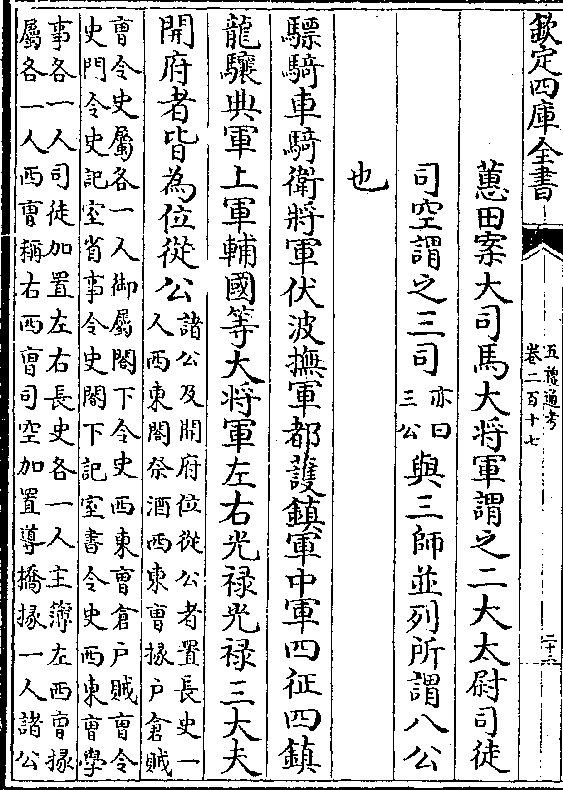 欽定四庫全書
五禮通考
卷二百十七
二十六
蕙田案大司馬大將軍謂之二大太尉司徒
司空謂之三司
亦曰
三公
與三師並列所謂八公
也
驃騎車騎衛將軍伏波撫軍都護鎮軍中軍四征四鎮
龍驤典軍上軍輔國等大將軍左右光禄光禄三大夫
開府者皆為位從公
諸公及開府位從公者置長史一
人西東閤祭酒西東曹掾户倉賊
曹令史屬各一人御屬閤下令史西東曹倉户賊曹令
史門令史記室省事令史閤下記室書令史西東曹學
事各一人司徒加置左右長史各一人主簿左西曹掾
屬各一人西曹稱右西曹司空加置導橋掾一人諸公